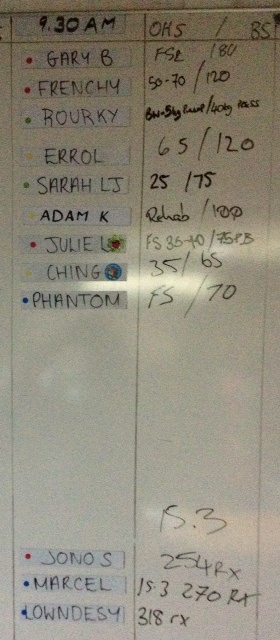 9.30 AM OHS / BS
GARY B FSR /80
FRENCHY 50-70 /120
ROURKY
ERROL 65 /120
SARAH LJ 25 /75
ADAM K Rehab /100
JULIE L FS 35-40 /75PB
CHING 35/65
PHANTOM FS /70
15.3
JONO S 254 Rx
MARCEL 15.3 270 RX
LOWNDESY 318 rx